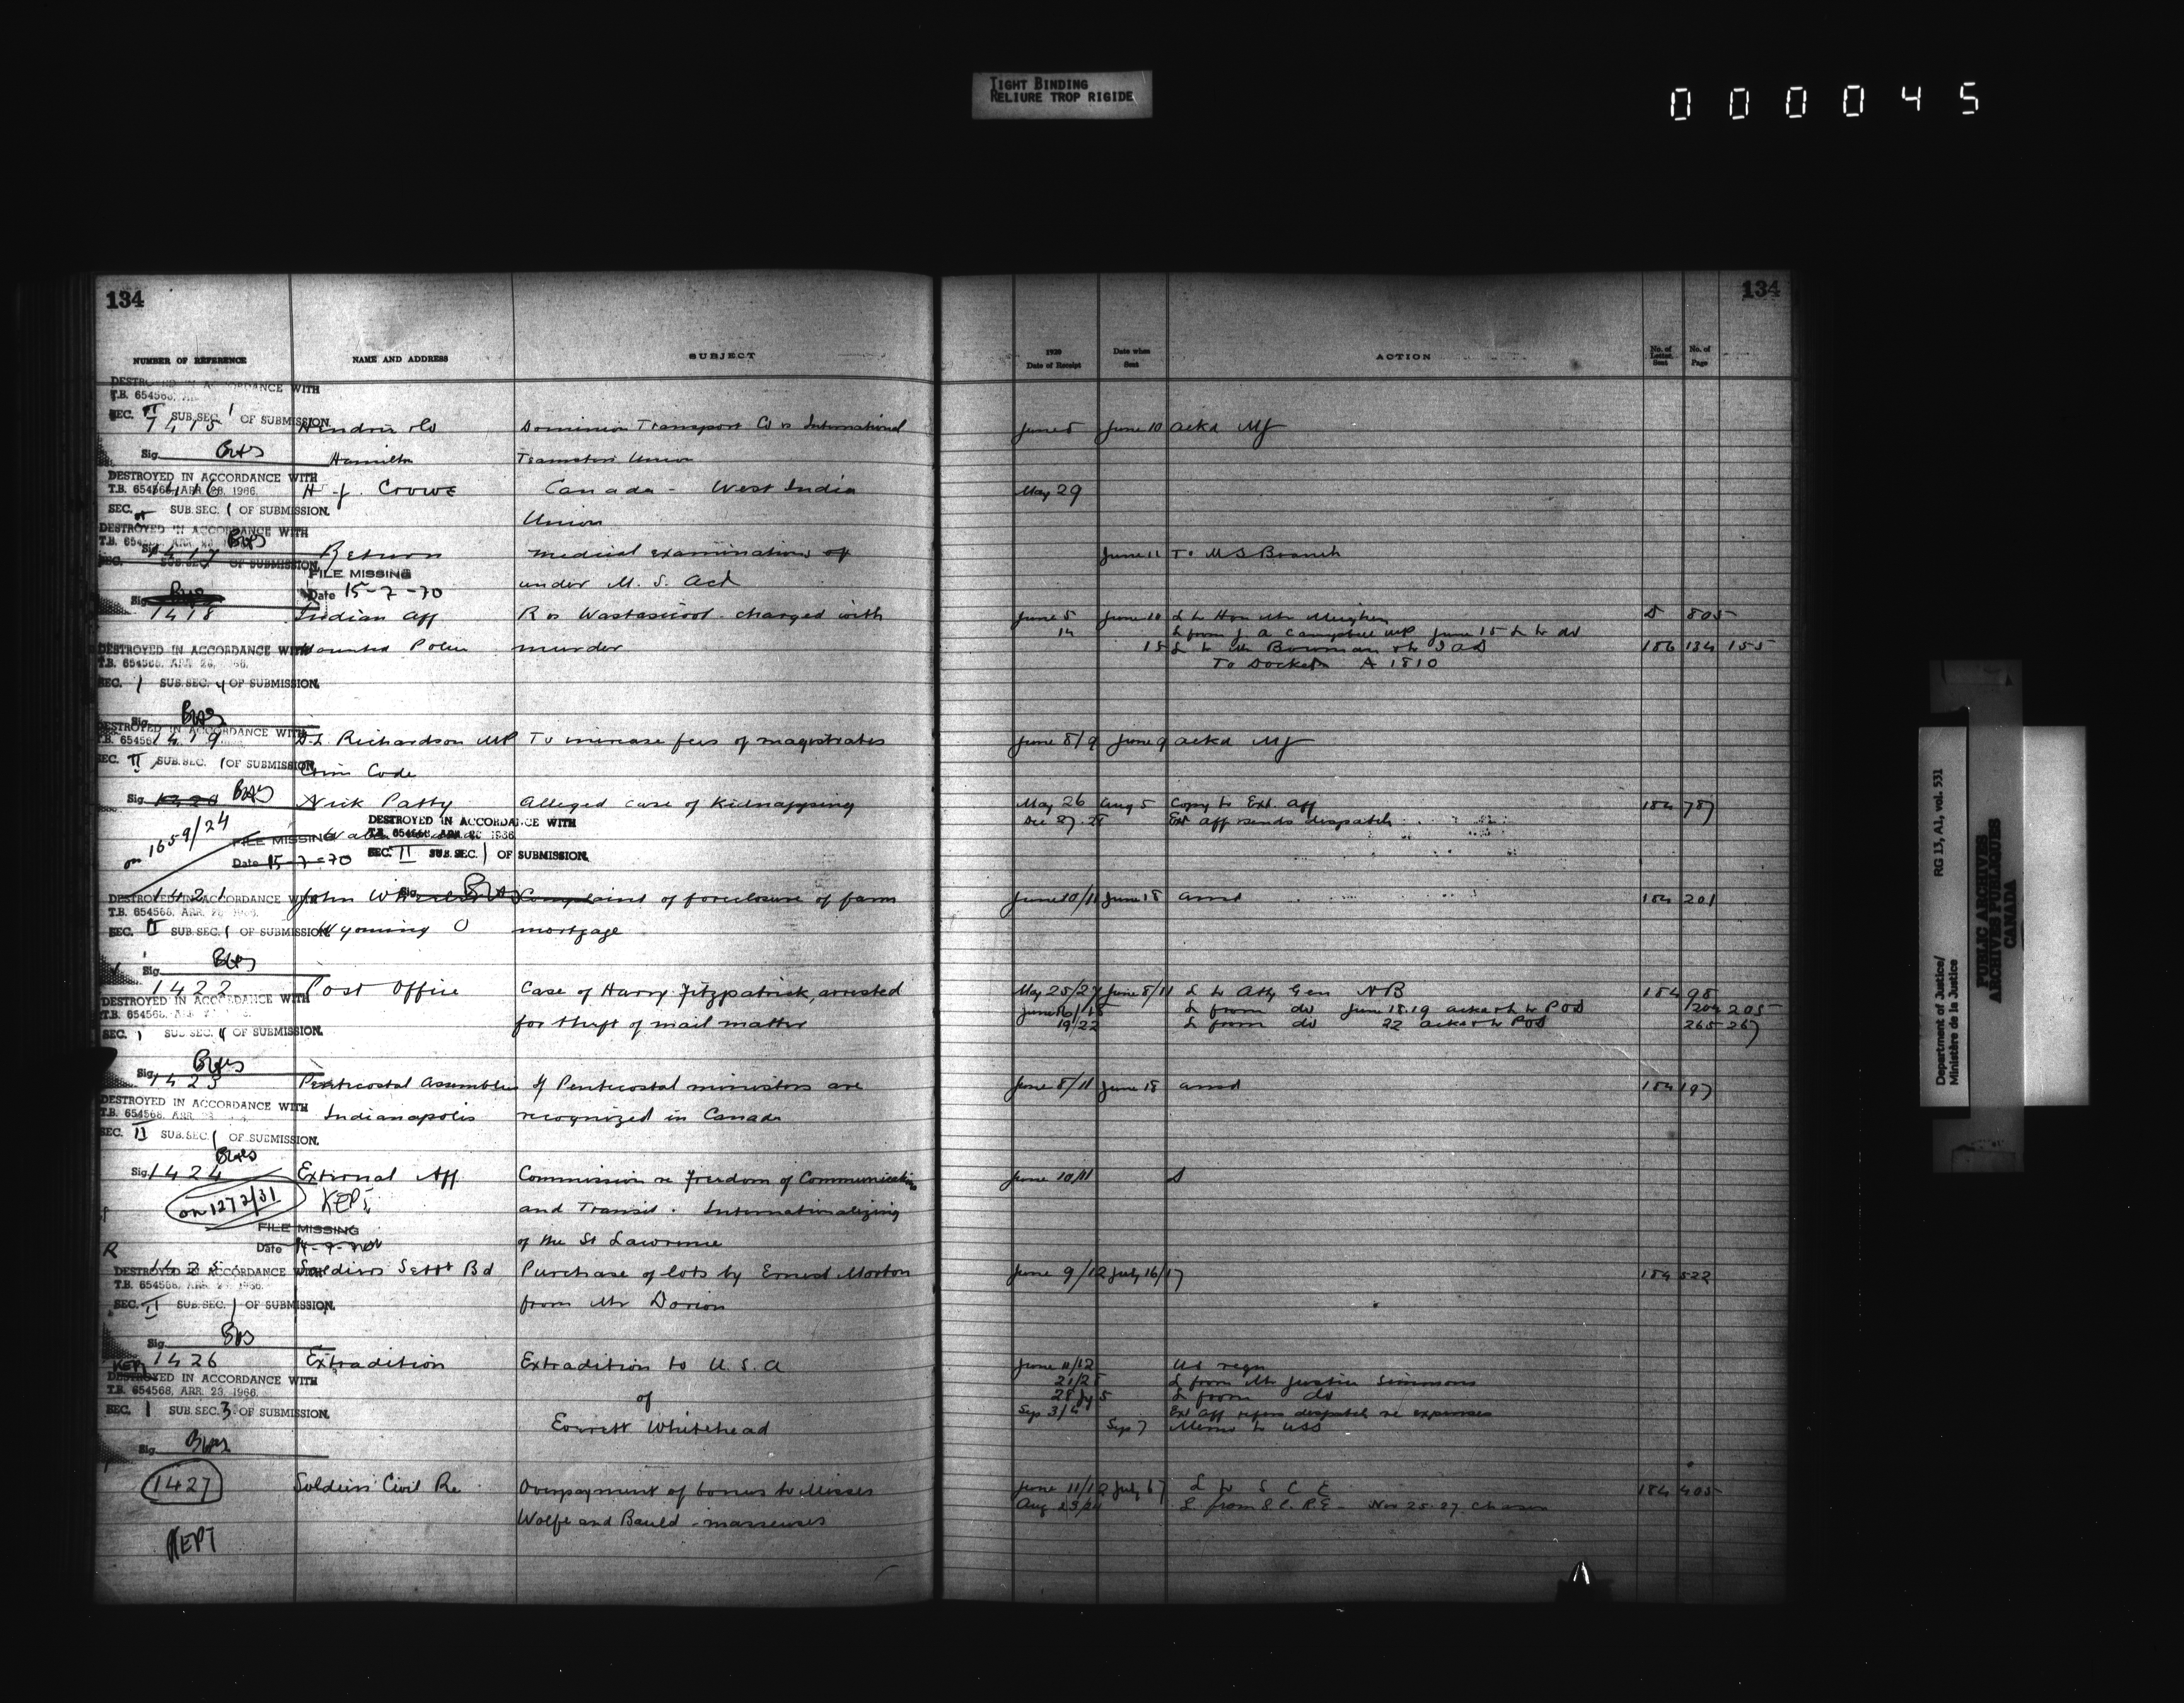 TIGHT BINDING
RELIURE TROP RIGIDE
000045
134
134
NUMBER OF REFERENCE NAME AND ADDRESS SUBJECT 1920 Date of Receipt Date when Sent ACTION No. of Letter Sent No. of Page
DESTROYED IN ACCORDANCE WITH
T.B. 654568,
SEC. II SUB.SEC. 1 OF SUBMISSION.
1415 Hendrie Co Dominion Transport Co vs International June 5 June 10 ackd MJ
Sig.
Hamilton Teamsters Union
DESTROYED IN ACCORDANCE WITH
T.B. 654568, APR. 28, 1966.
1416 H. J. Crowe Canada - West India May 29
SEC. SUB.SEC. 1 OF SUBMISSION.
Union
DESTROYED IN ACCORDANCE WITH
1417 Return Medical examinations of June 11 To MS Branch
SEC. SUB.SEC. OF SUBMISSION.
FILE MISSING
under M. S. Act
Date 15-7-70
Sig.
1418 Indian Aff R vs Wastasicoot charged with June 5 June 10 L to Hon Mr Meighen D 805
14 L from J. A. Campbell MP June 15 L to do
Mounted Police murder 15 L to Mr Bowman & to IAD 186 134 155
To Docket A 1810
DESTROYED IN ACCORDANCE WITH
T.B. 654568, APR. 28, 1966.
SEC. 1 SUB.SEC. 4 OF SUBMISSION.
Sig.
DESTROYED IN ACCORDANCE WITH
1419 Richardson MP To increase fees of magistrates June 8/9 June 9 ackd MJ
SEC. II SUB.SEC. 1 OF SUBMISSION.
Crim Code
Sig. 1420 Nick Patty Alleged case of kidnapping May 26 Aug 5 Copy to Ext. Aff 184 787
Ext Aff sends despatch
on 1659/24
DESTROYED IN ACCORDANCE WITH
T.B. 654568, APR. 28, 1966
FILE MISSING
Date 15-7-70
SEC. II SUB.SEC. 1 OF SUBMISSION.
1421 John Complaint of foreclosure of farm June 10/11 June 18 ansd 184 201
DESTROYED IN ACCORDANCE WITH
T.B. 654568, APR. 28, 1966.
Sig.
SEC. II SUB.SEC. 1 OF SUBMISSION.
Wyoming O mortgage
Sig.
1422 Post Office Case of Harry Fitzpatrick, arrested May 25/27 June 8/11 L to Atty Gen NB 184 98
DESTROYED IN ACCORDANCE WITH
T.B. 654568,
L from do June 18.19 ackd & to POD 204 205
for theft of mail matter 19/22 L from do 22 ackd & to POD 265 267
SEC. 1 SUB.SEC. 4 OF SUBMISSION.
Sig.
1423 Pentecostal Assemblies If Pentecostal ministers are June 8/11 June 18 ansd 184 197
DESTROYED IN ACCORDANCE WITH
T.B. 654568, APR. 28,
Indianapolis recognized in Canada
SEC. II SUB.SEC. 1 OF SUBMISSION.
Sig. 1424 External Aff Commission re Freedom of Communication June 10/11 D
on 1272/31 KEPT and Transit. Internationalizing
FILE MISSING
Date
of the St Lawrence
R
1425 Soldiers Settt Bd Purchase of lots by Ernest Morton June 9/12 July 16/17 184 522
DESTROYED IN ACCORDANCE WITH
T.B. 654568, APR. 28, 1966.
SEC. II SUB.SEC. 1 OF SUBMISSION.
from Mr Dorion
Sig.
KEPT 1426 Extradition Extradition to U.S.A June 11/12 US reqn
DESTROYED IN ACCORDANCE WITH
T.B. 654568, APR. 28, 1966.
21/25 L from Mr Justice Simmons
of 28 Jy 5 L from do
SEC. 1 SUB.SEC. 3 OF SUBMISSION.
Sep 3/4 Ext Aff refers despatch re expenses
Everett Whitehead Sep 7 Memo to USS
Sig.
1427 Soldiers Civil Re Overpayment of bonus to Misses June 11/12 July 67 L to S C E 184 405
Aug 23/24 L. from S.C.R.E - Nov 25.27
Wolfe and Bauld - masseuses
KEPT
RG 13, A1, vol. 531
Department of Justice/
Ministère de la Justice
PUBLIC ARCHIVES
ARCHIVES PUBLIQUES
CANADA